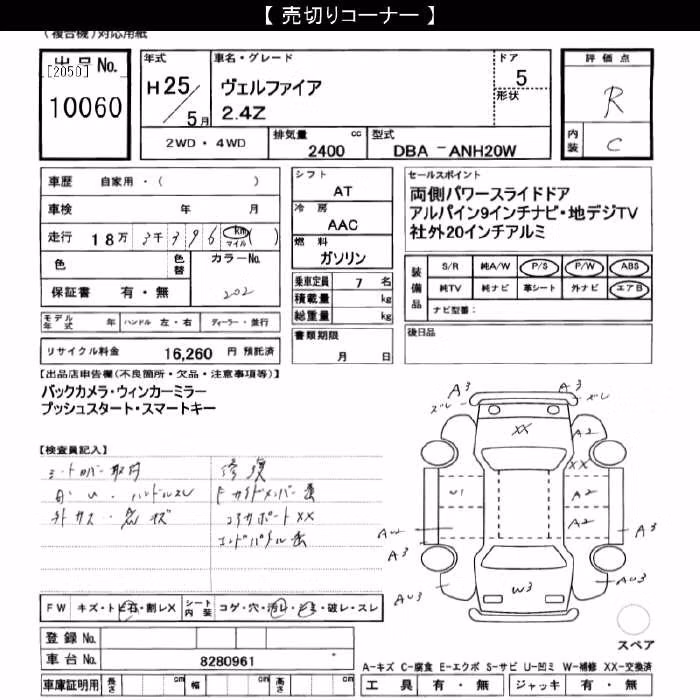 【 売切りコーナー 】
(複合機)対応用紙
出品No.
[2050]
10060
年式
H25/5月
車名・グレード
ヴェルファイア
2.4Z
ドア
5
形状
評価点
R
内装
C
2WD・4WD
排気量 cc
2400
型式
DBA － ANH20W
車歴 自家用・( )
車検 年 月
走行 18万 3千396 km マイル ( )
色 色替 カラーNo.
202
保証書 有・無
シフト
AT
冷房
AAC
燃料
ガソリン
乗車定員 7 名
積載量 kg
総重量 kg
セールスポイント
両側パワースライドドア
アルパイン9インチナビ・地デジTV
社外20インチアルミ
装備品
S/R 純A/W P/S P/W ABS
純TV 純ナビ 革シート 外ナビ エアB
ナビ型番:
モデル年式 年 ハンドル 左・右 ディーラー・並行
書類期限
月 日
後日品
リサイクル料金 16,260 円 預託済
【出品店申告欄(不良箇所・欠品・注意事項等)】
バックカメラ・ウィンカーミラー
プッシュスタート・スマートキー
【検査員記入】
シートカバー取付
ハンドルスレ
修復
コアサポートXX
A3 ズレ
A3 ズレ
XX
A2
XX
W1
A2
A2
A3
A3
W3
AU3
AU3
FW キズ・トビ石・割レX シート内装 コゲ・穴・汚レ・破レ・スレ
スペア
登録No.
車台No. 8280961
A－キズ C－腐食 E－エクボ S－サビ U－凹ミ W－補修 XX－交換済
車庫証明用 長さ cm 幅 cm 高さ cm
工具 有・無 ジャッキ 有・無